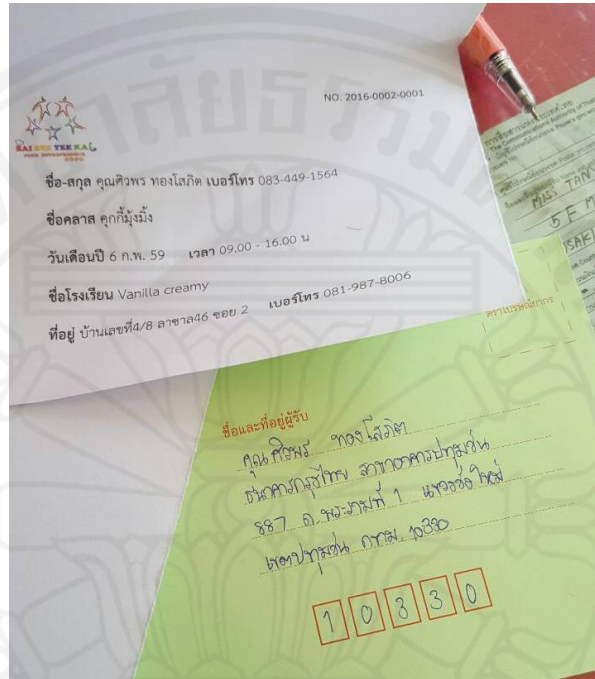 NO. 2016-0002-0001
ชื่อ-สกุล คุณศิวพร ทองโสภิต เบอร์โทร 083-449-1564
ชื่อคลาส คุกกี้มุ้งมิ้ง
วันเดือนปี 6 ก.พ. 59 เวลา 09.00 - 16.00 น
ชื่อโรงเรียน Vanilla creamy
ที่อยู่ บ้านเลขที่4/8 ลาซาล46 ซอย 2 เบอร์โทร 081-987-8006
การสื่อสารแห่งประเทศไทย
The Communications Authority of
MISS TAN
5 F M
ISAKI
ตราไปรษณียากร
ชื่อและที่อยู่ผู้รับ
คุณ ศิวพร ทองโสภิต
ธนาคารกรุงไทย สาขาอาคารปทุมวัน
887 ถ. พระรามที่ 1 แขวงวังใหม่
เขตปทุมวัน กทม. 10330
10330